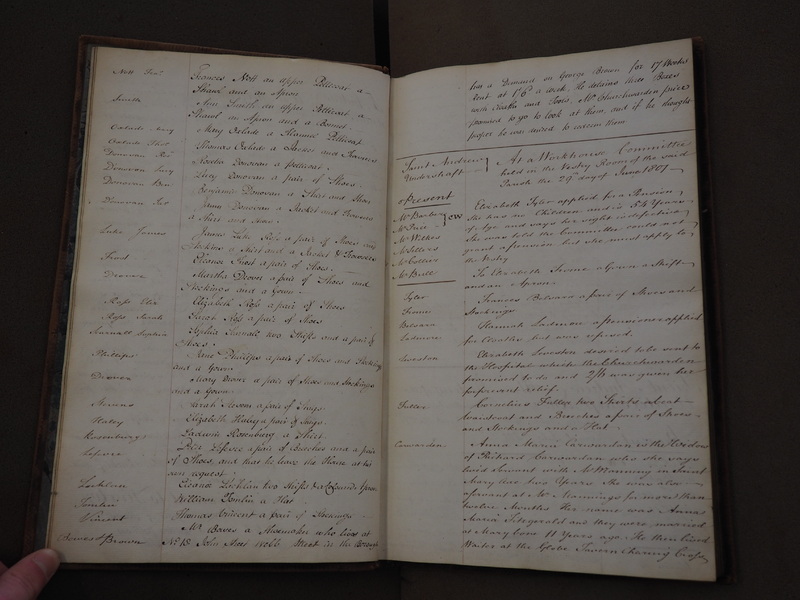 Nott Fra.s Frances Nott an upper Petticoat a
Shawl and an Apron
Smith Ann Smith an upper Petticoat a
Shawl an Apron and a Bonnet
Mary a Flannel Petticoat
Thomas a Jacket and Trowsers
Donovan a Petticoat
Donovan Lucy Lucy Donovan a pair of Shoes
Donovan Ben Benjamin Donovan a Shirt and Shoes
Donovan Jas James Donovan a Jacket and Trowsers
a Shirt and Shoes
Luke James James Luke a pair of Shoes and
Stockings a Shirt and a Jacket & Trowsers
Frost Eleanor Frost a pair of Shoes
Martha a pair of Shoes and
Stockings and a Gown
Ross Eliz Elizabeth Ross a pair of Shoes
Ross Sarah Sarah Ross a pair of Shoes
Sophia Sophia two Shifts and a pair of
Shoes
Phillips Jane Phillips a pair of Shoes and Stockings
and a Gown
Mary a pair of Shoes and Stockings
and a Gown
Sarah a pair of Snugs
Haley Elizabeth Haley a pair of Snugs
Rosenburg Ludwig Rosenburg a Shirt
Lefevre Peter Lefevre a pair of Breeches and a pair
of Shoes and that he leave the House at his
own request
Lachlin Eleanor Lachlin two Shifts & a Gown
Tomlin William Tomlin a Hat
Vincent Thomas Vincent a pair of Stockings
Brown Mr Bowes a Shoemaker who lives at
No 18 John Street in the Borough
has a Demand on George Brown for 17 Weeks
Rent at 1/6 a week. He detains three Boxes
with Cloaths and Tools, Mr Churchwarden
promised to go to look at them, and if he thought
proper he was desired to redeem them
Saint Andrew
Undershaft
At a Workhouse Committee
held in the Vestry Room of the said
Parish the 29th day of June 1807
Present
Mr Barber
CW
Mr
Mr Wilkes
Mr Sellers
Mr Collier
Mr Bull
Tyler Elizabeth Tyler applied for a Pension
She has no Children and is 54 Years
of Age and says her sight is defective
She was told the Committee could not
grant a pension but she must apply to
the Vestry
To Elizabeth a Gown a Shift
and an Apron
Frances a pair of Shoes and
Stockings
Hannah a pensioner applied
for Cloaths but was refused
Elizabeth desired to be sent to
the Hospital which the Churchwarden
promised to do and 2/6 was given her
for present relief
Fuller Cornelius Fuller two Shirts a Coat
Waistcoat and Breeches a pair of Shoes
and Stockings and a Hat
Carwarden Anna Maria Carwarden is the Widow
of Richard Carwarden who she says
lived Servant with Mr Manning in Saint
Mary Axe two Years She was also
a servant at Mr Mannings for more than
twelve Months Her name was Anna
Maria Fitzgerald and they were married
at Mary bone 11 Years ago. He then lived
Waiter at the Globe Tavern Charing Cross